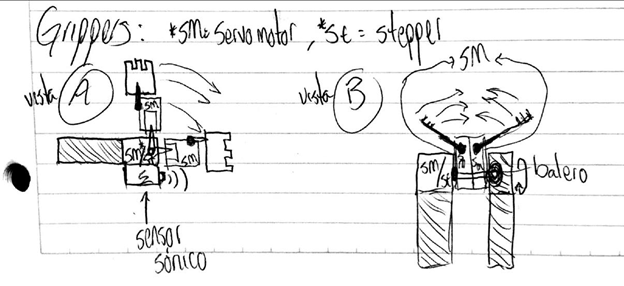 Grippers: *SM= Servomotor, *St = stepper
SM
vista A
SM
SM
SM
S
sensor
sónico
vista B
SM/
St
balero